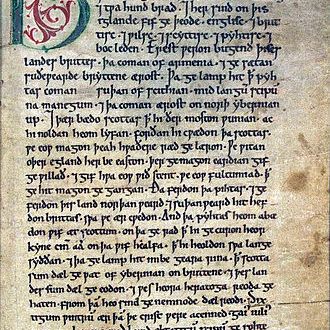 tpa hund brad. ⁊ her sind on þis
iglande fif geþeode. englisc. ⁊ brit
tisc. ⁊ pilsc. ⁊ scyttisc. ⁊ pyhtisc. ⁊
boc leden. Erest peron bugend þises
landes brittes. þa coman of armenia. ⁊ ge sætan
suðepearde bryttene ærost. Þa ge lamp hit ꝥ pyh
tas coman suþan of scithian. mid langū scipū
na manegum. ⁊ þa coman ærost on norþ ybernian
up. ⁊ þær bædo scottas ꝥ hi ðer moston punian. ac
hi noldan heom lyfan. forðan hi cpædon þa scottas.
pe eop magon þeah hpaðere ræd ge læron. Pe pitan
oþer egland her be easton. þer ge magon eardian gif
ge pillað. ⁊ gif hpa eop pið stent. pe eop fultumiað. ꝥ
ge hit magon ge gangan. Ða ferdon þa pihtas. ⁊ ge
ferdon þis land norþan peard. ⁊ suþan peard hit hef
don brittas. spa pe ær cpedon. And þa pyhtas heom abæ
don pif æt scottum. on þa ge rad ꝥ hi ge curon heor
kyne cinn aa on þa pif healfa. ꝥ hi heoldon spa lange
syððan. ⁊ þa ge lamp hit imbe geara rina. ꝥ scotta
sum dæl ge pat of ybernian on brittene. ⁊ þes lan
des sum dæl ge eodon. ⁊ pes heora heratoga reoda ge
haten. from þā heo sind ge nemnode dæl reodi. Sixt
tigum pintrū ær þā þe crist pere acenned